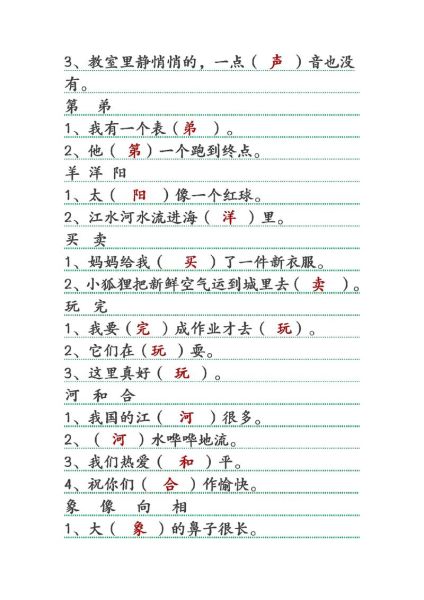 3、教室里静悄悄的，一点（ 声 ）音也没
有。
第 弟
1、我有一个表（弟 ）。
2、他（ 第）一个跑到终点。
羊 洋 阳
1、太（ 阳 ）像一个红球。
2、江水河水流进海（ 洋 ）里。
买 卖
1、妈妈给我（ 买 ）了一件新衣服。
2、小狐狸把新鲜空气运到城里去（ 卖 ）。
玩 完
1、我要（完 ）成作业才去（ 玩）。
2、它们在（玩 ）耍。
3、这里真好（ 玩 ）。
河 和 合
1、我国的江（ 河 ）很多。
2、（ 河 ）水哗哗地流。
3、我们热爱（ 和 ）平。
4、祝你们（ 合 ）作愉快。
象 像 向 相
1、大（ 象 ）的鼻子很长。